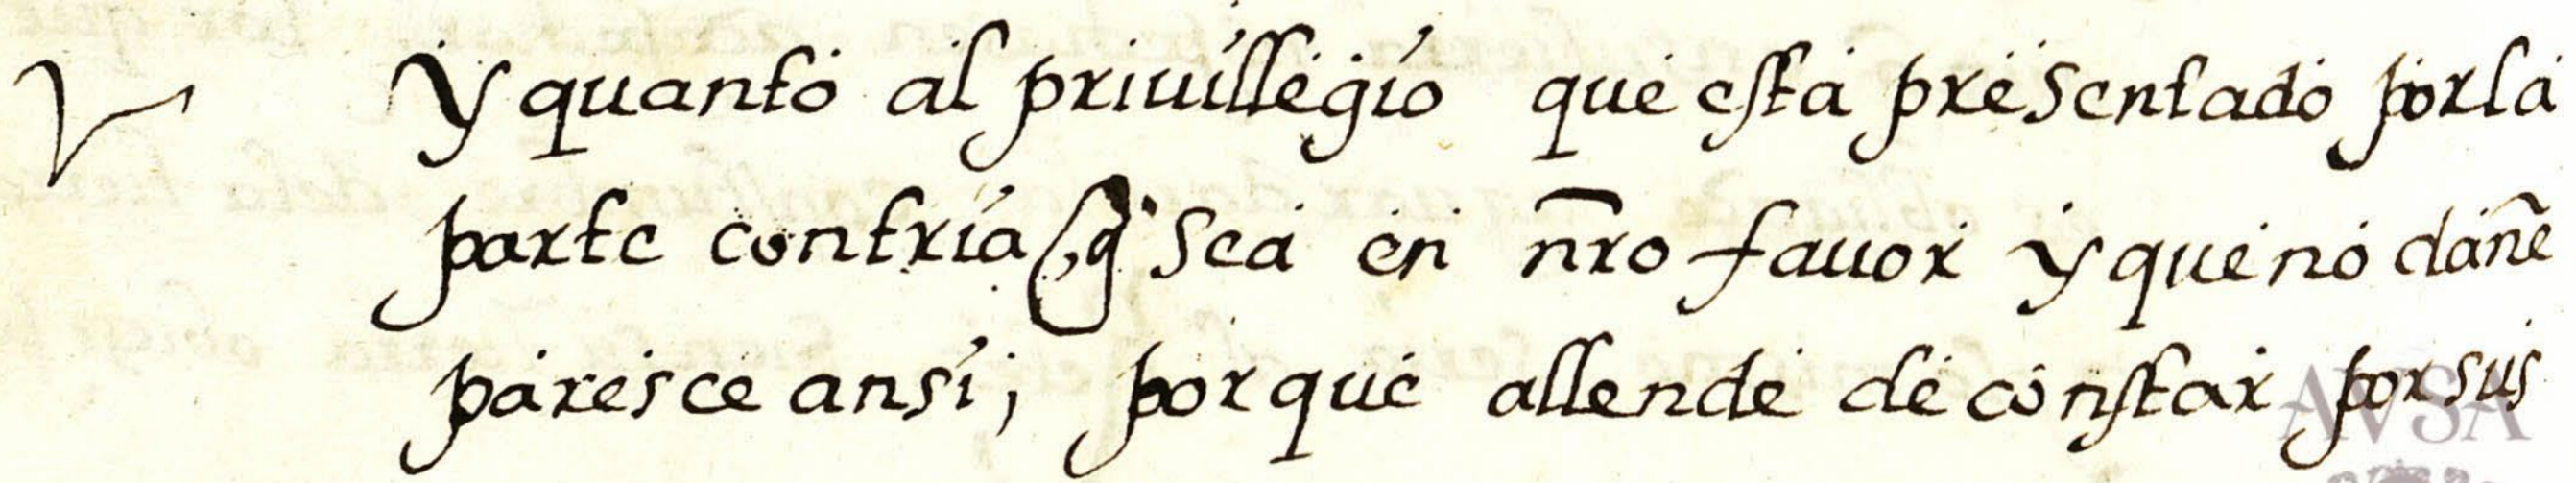 y quanto al priuillegio que esta presentado por la
parte contria q̃ sea en nr̄o fauor y que no dañe
paresce ansi; porque allende de constar por sus
AVSA